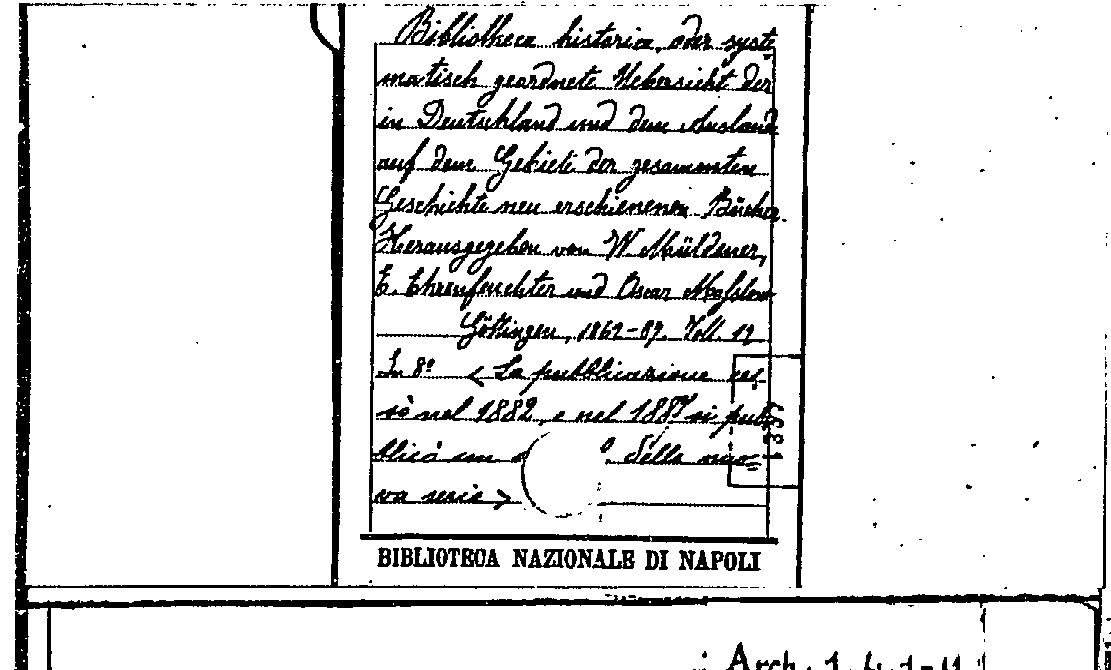 Bibliotheca historica, oder syste
matisch geordnete Uebersicht der
in Deutschland und dem Ausland
auf dem Gebiete der gesammten
Geschichte neu erschienenen Bücher.
Herausgegeben von W Müldener,
E. Ehrenfeuchter und Oscar Masslow
Göttingen, 1862-87. Voll. 19
In 8° < La pubblicazione ces-
sò nel 1882, e nel 1887 si pub
blicò un della nuo-
va serie >
1899
BIBLIOTECA NAZIONALE DI NAPOLI
Arch. 1.4.1-11